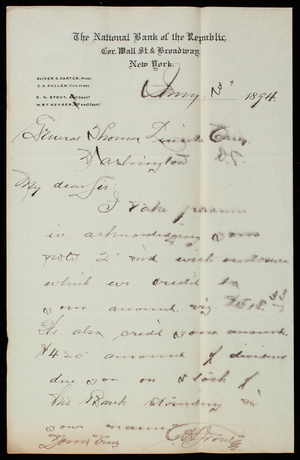 The National Bank of the Republic,
Cor. Wall St. & Broadway,
New York.
OLIVER S. CARTER, Prest.
E. H. PULLEN, Vice Prest.
E. H. STOUT, Cashier
W. B. T. KEYSER, Asst Cashr.
Jany. 3 1894
General Thomas Lincoln Casey
Washington D.C.
My dear Sir:
I take pleasure
in acknowledging your
note 2nd with enclosures
which we credit to
your account viz $518.33
We also credit your account
$420 amount of dividend
due you on stock of
this Bank standing in
your name
Yours truly